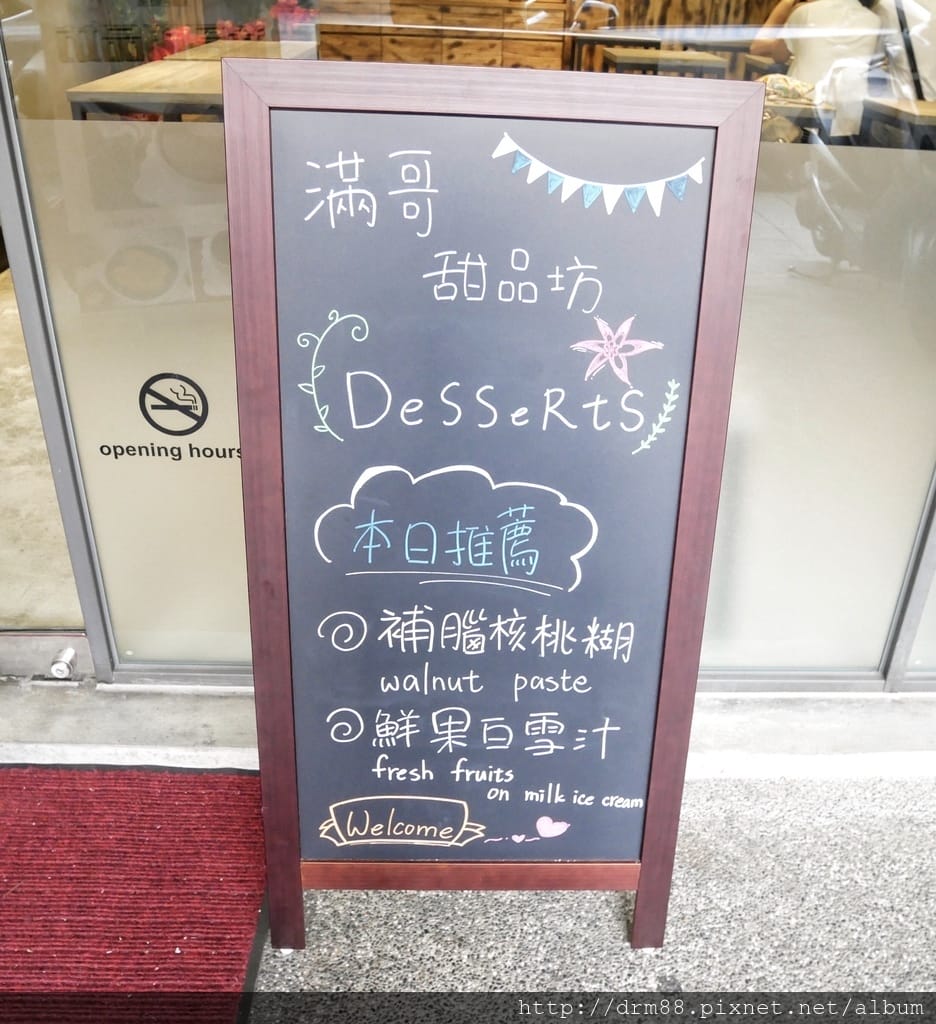 滿哥
甜品坊
DeSSeRtS
本日推薦
補腦核桃糊
walnut paste
鮮果白雪汁
fresh fruits
on milk ice cream
Welcome
opening hours
http://drm88.pixnet.net/album